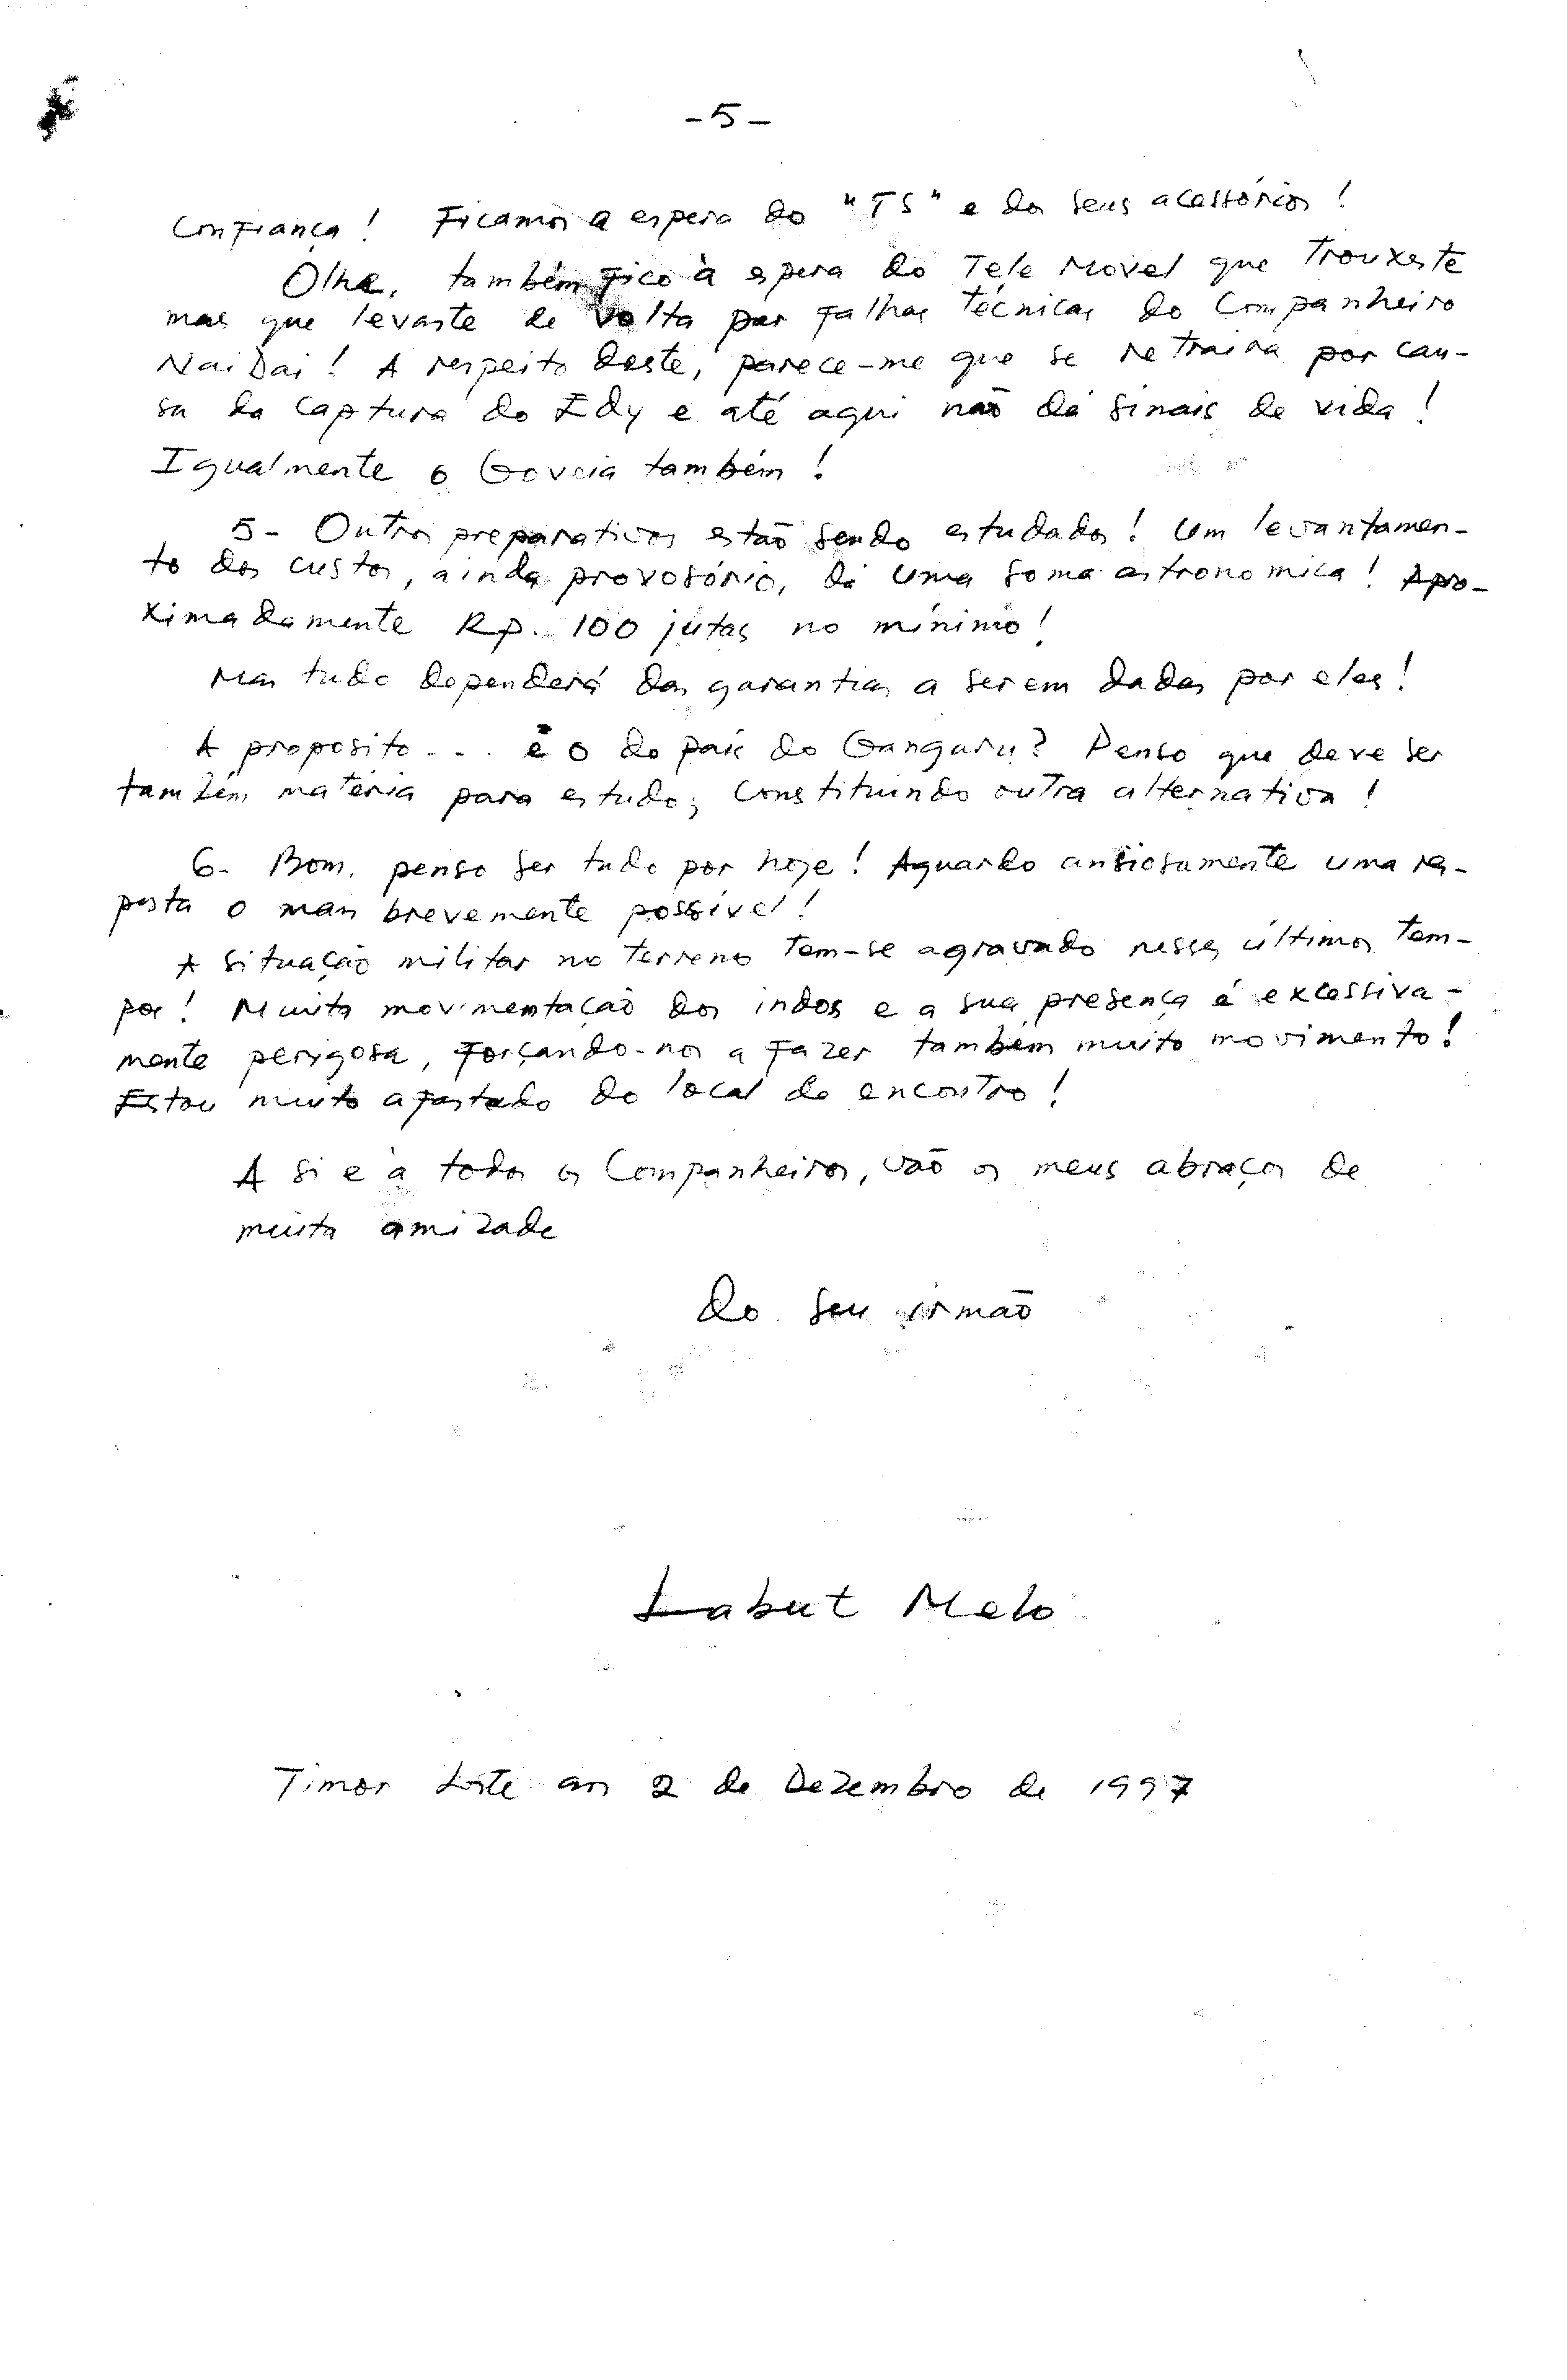 -5-
Confiança! Ficamos a espera do "TS" e dos seus acessórios!
Olhe, também fico à espera do Tele Movel que trouxeste
mas que levaste de volta por falhas técnicas do Companheiro
NaiDai! A respeito deste, parece-me que se retraira por cau-
sa da captura do Edy e até aqui não dá sinais de vida!
Igualmente o Goveia também!
5- Outros preparativos estão sendo estudados! Um levantamen-
to dos custos, ainda provosório, dá uma soma astronomica! Apro-
ximadamente Rp. 100 jutas no mínimo!
Mas tudo dependerá das garantias a serem dadas por eles!
A proposito... é o do país do Ganguru? Penso que deve ser
também matéria para estudo; Constituindo outra alternativa!
6- Bom, penso ser tudo por hoje! Aguardo ansiosamente uma res-
posta o mais brevemente possível!
A situação militar no terreno tem-se agravado nesses últimos tem-
pos! Muita movimentação dos indos e a sua presença é excessiva-
mente perigosa, forçando-nos a fazer também muito movimento!
Estou muito afastado do local do encontro!
A si e à todos os Companheiros, vão os meus abraços de
muita amizade
do seu irmão
Labut Melo
Timor Leste aos 2 de Dezembro de 1997